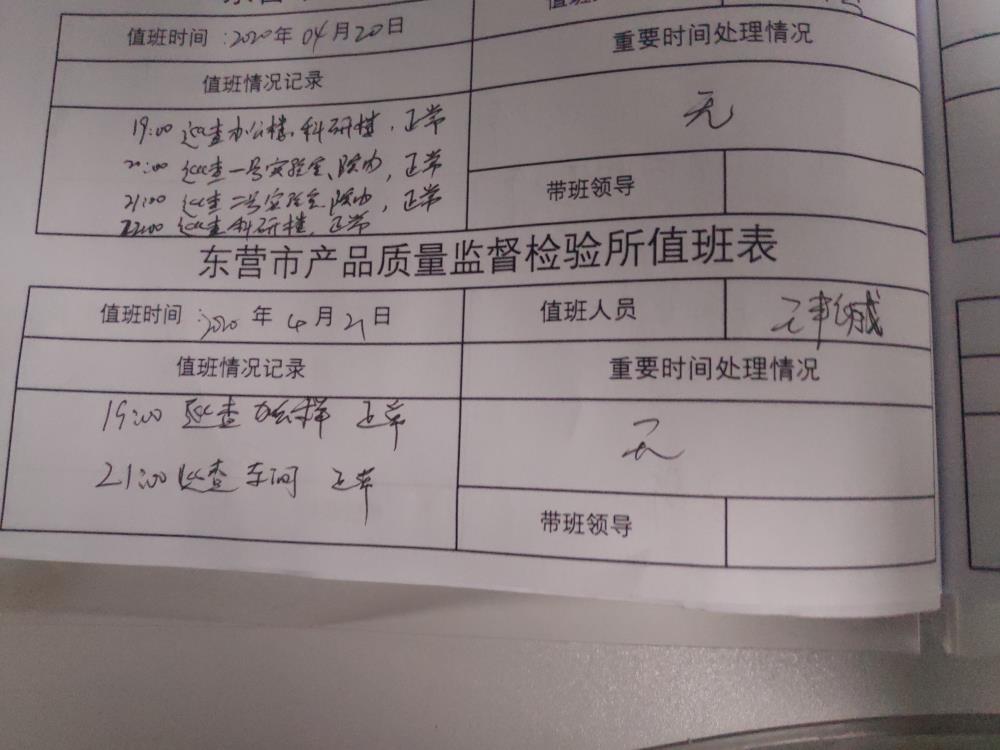 值班时间:2020年04月20日
重要时间处理情况
值班情况记录
无
19:00 巡查办公楼、科研楼，正常
20:00 巡查一号实验室、院内，正常
21:00 巡查二号实验室、院内，正常
22:00 巡查科研楼，正常
带班领导
东营市产品质量监督检验所值班表
值班时间:2020年4月21日
值班人员
值班情况记录
重要时间处理情况
19:00 巡查办公楼 正常
无
21:00 巡查车间 正常
带班领导